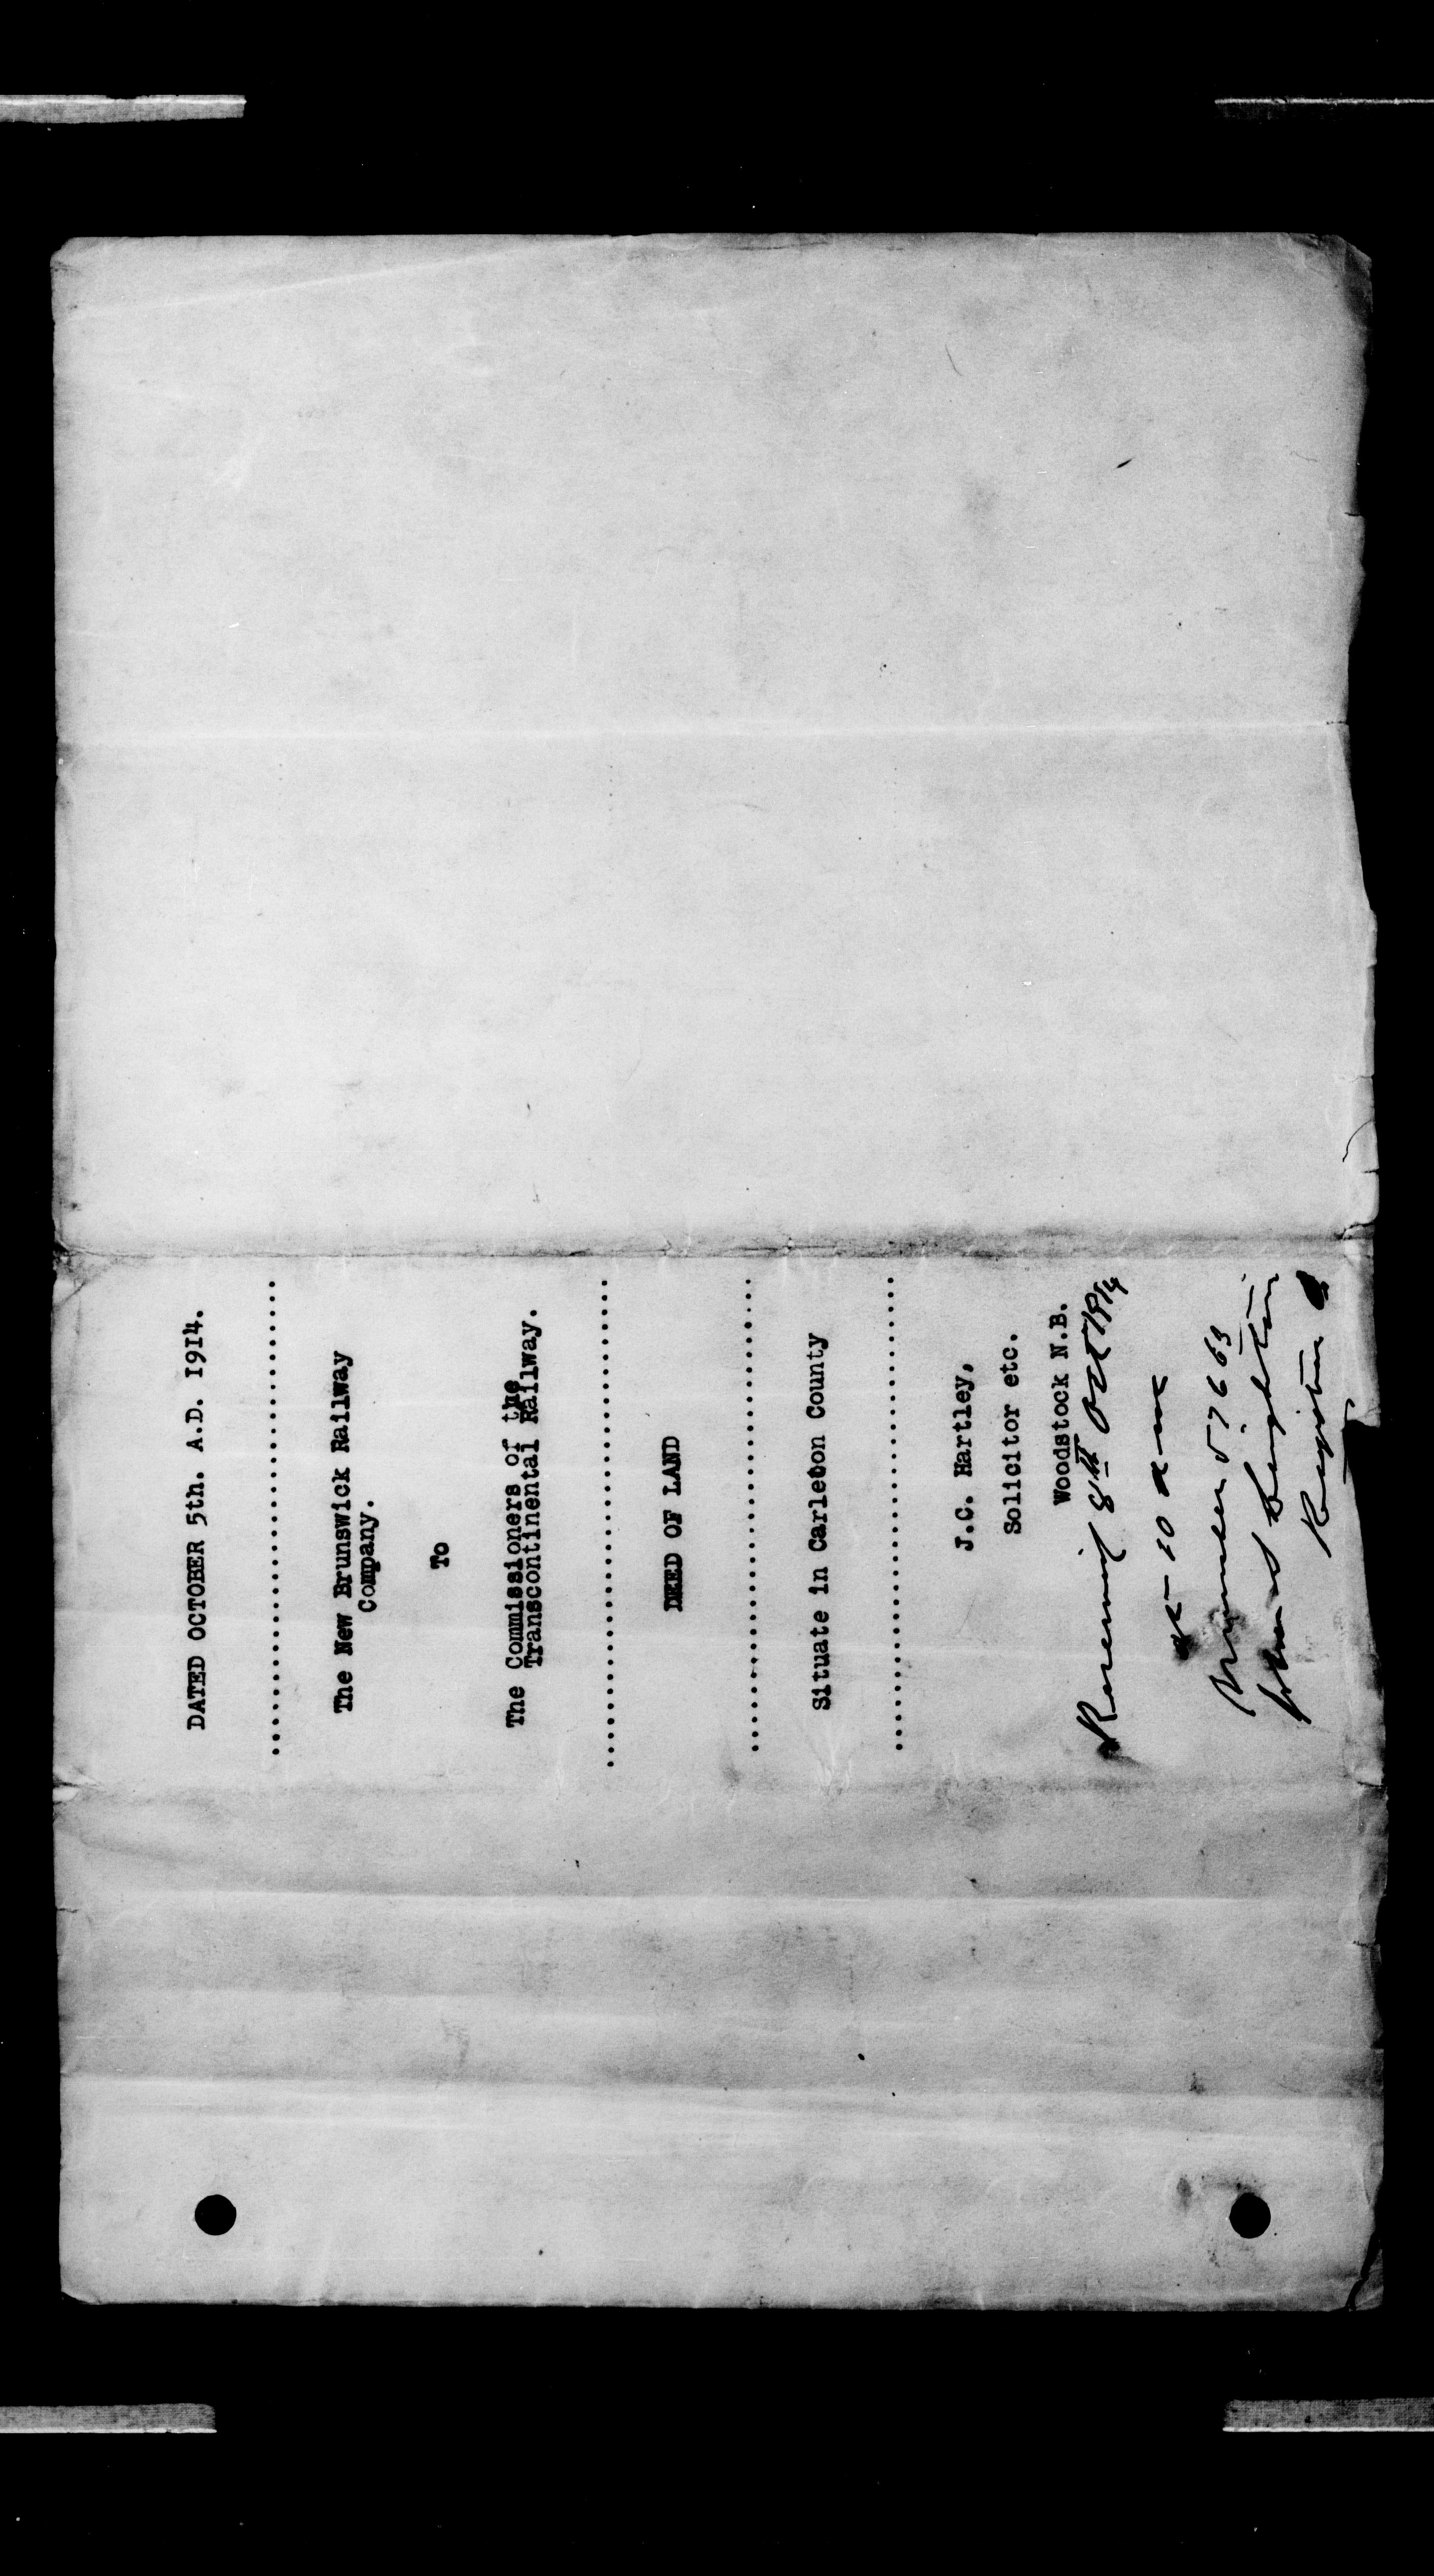 DATED OCTOBER 5th. A.D. 1914.
The New Brunswick Railway
Company.
To
The Commissioners of the
Transcontinental Railway.
DEED OF LAND
Situate in Carleton County
J.C. Hartley,
Solicitor etc.
Woodstock N.B.
Received 8th Oct 1914
at 10 a m
Number 57663
Registrar